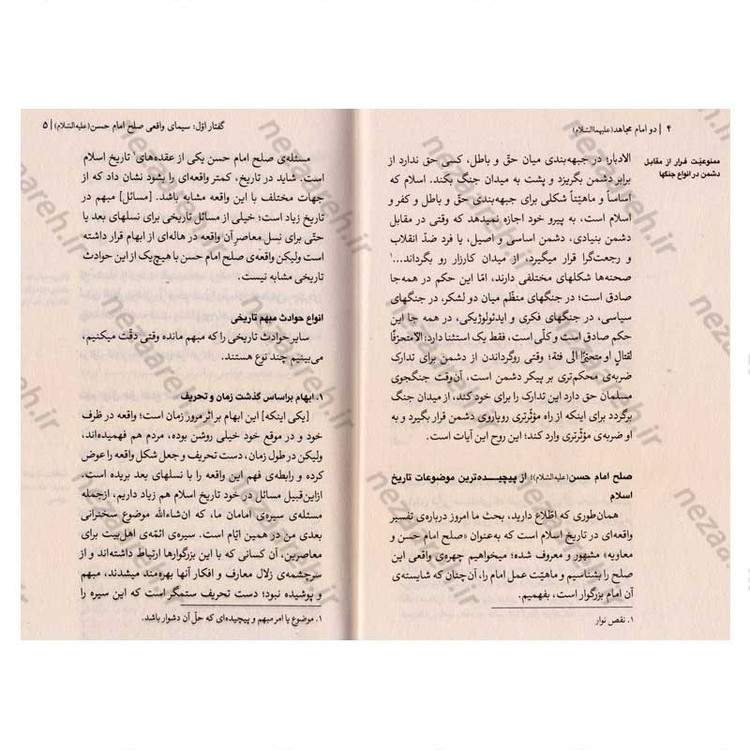 ۴ | دو امام مجاهد(علیهما‌السّلام)
ممنوعیّت فرار از مقابل
دشمن در انواع جنگها
الادبار؛ در جبهه‌بندی میان حقّ و باطل، کسی حق ندارد از
برابر دشمن بگریزد و پشت به میدان جنگ بکند. اسلام که
اساساً و ماهیّتاً شکلی برای جبهه‌بندی حقّ و باطل و کفر و
اسلام است، به پیرو خود اجازه نمیدهد که وقتی در مقابل
دشمن بنیادی، دشمن اساسی و اصیل، یا فرد ضدّ انقلاب
و رجعت‌گرا قرار میگیرد، از میدان کارزار رو بگرداند...۱
صحنه‌ها شکلهای مختلفی دارند، امّا این حکم در همه‌جا
صادق است؛ در جنگهای منظّم میان دو لشکر، در جنگهای
سیاسی، در جنگهای فکری و ایدئولوژیکی، در همه جا این
حکم صادق است و کلّی است، فقط یک استثنا دارد: الّا متحرّفًا
لقتالٍ او متحیّزًا الی فئة؛ وقتی روگرداندن از دشمن برای تدارک
ضربه‌ی محکم‌تری بر پیکر دشمن است، آن‌وقت جنگجوی
مسلمان حق دارد این تدارک را برای خود کند، از میدان جنگ
برگردد برای اینکه از راه مؤثّرتری رویاروی دشمن قرار بگیرد و به
او ضربه‌ی مؤثّرتری وارد کند؛ این روح این آیات است.
صلح امام حسن(علیه‌السّلام)؛ از پیچیده‌ترین موضوعات تاریخ
اسلام
همان‌طوری که اطّلاع دارید، بحث ما امروز درباره‌ی تفسیر
واقعه‌ای در تاریخ اسلام است که به‌عنوان «صلح امام حسن و
معاویه» مشهور و معروف شده؛ میخواهیم چهره‌ی واقعی این
صلح را بشناسیم و ماهیّت عمل امام را، آن‌چنان که شایسته‌ی
آن امام بزرگوار است، بفهمیم.
۱. نقص نوار
گفتار اوّل: سیمای واقعی صلح امام حسن(علیه‌السّلام) | ۵
مسئله‌ی صلح امام حسن یکی از عقده‌های۱ تاریخ اسلام
است. شاید در تاریخ، کمتر واقعه‌ای را بشود نشان داد که از
جهات مختلف با این واقعه مشابه باشد. [مسائل] مبهم در
تاریخ زیاد است؛ خیلی از مسائل تاریخی برای نسلهای بعد یا
حتّی برای نسل معاصرِ آن واقعه در هاله‌ای از ابهام قرار داشته
است ولیکن واقعه‌ی صلح امام حسن با هیچ‌یک از این حوادث
تاریخی مشابه نیست.
انواع حوادث مبهم تاریخی
سایر حوادث تاریخی را که مبهم مانده وقتی دقّت میکنیم،
می‌بینیم چند نوع هستند.
۱. ابهام براساس گذشت زمان و تحریف
[یکی اینکه] این ابهام بر اثر مرور زمان است؛ واقعه در ظرف
خود و در موقع خود خیلی روشن بوده، مردم هم فهمیده‌اند،
ولیکن در طول زمان، دست تحریف و جعل شکل واقعه را عوض
کرده و رابطه‌ی فهم این واقعه را با نسلهای بعد بریده است.
ازاین‌قبیل مسائل در خود تاریخ اسلام هم زیاد داریم، ازجمله
مسئله‌ی سیره‌ی امامان ما، که ان‌شاءالله موضوع سخنرانی
بعدی من در همین ایّام است. سیره‌ی ائمّه‌ی اهل‌بیت برای
معاصرین، آن کسانی که با این بزرگوارها ارتباط داشته‌اند و از
سرچشمه‌ی زلال معارف و افکار آنها بهره‌مند میشدند، مبهم
و پوشیده نبود؛ دست تحریف ستمگر است که این سیره را
۱. موضوع یا امر مبهم و پیچیده‌ای که حلّ آن دشوار باشد.
nezaareh.ir